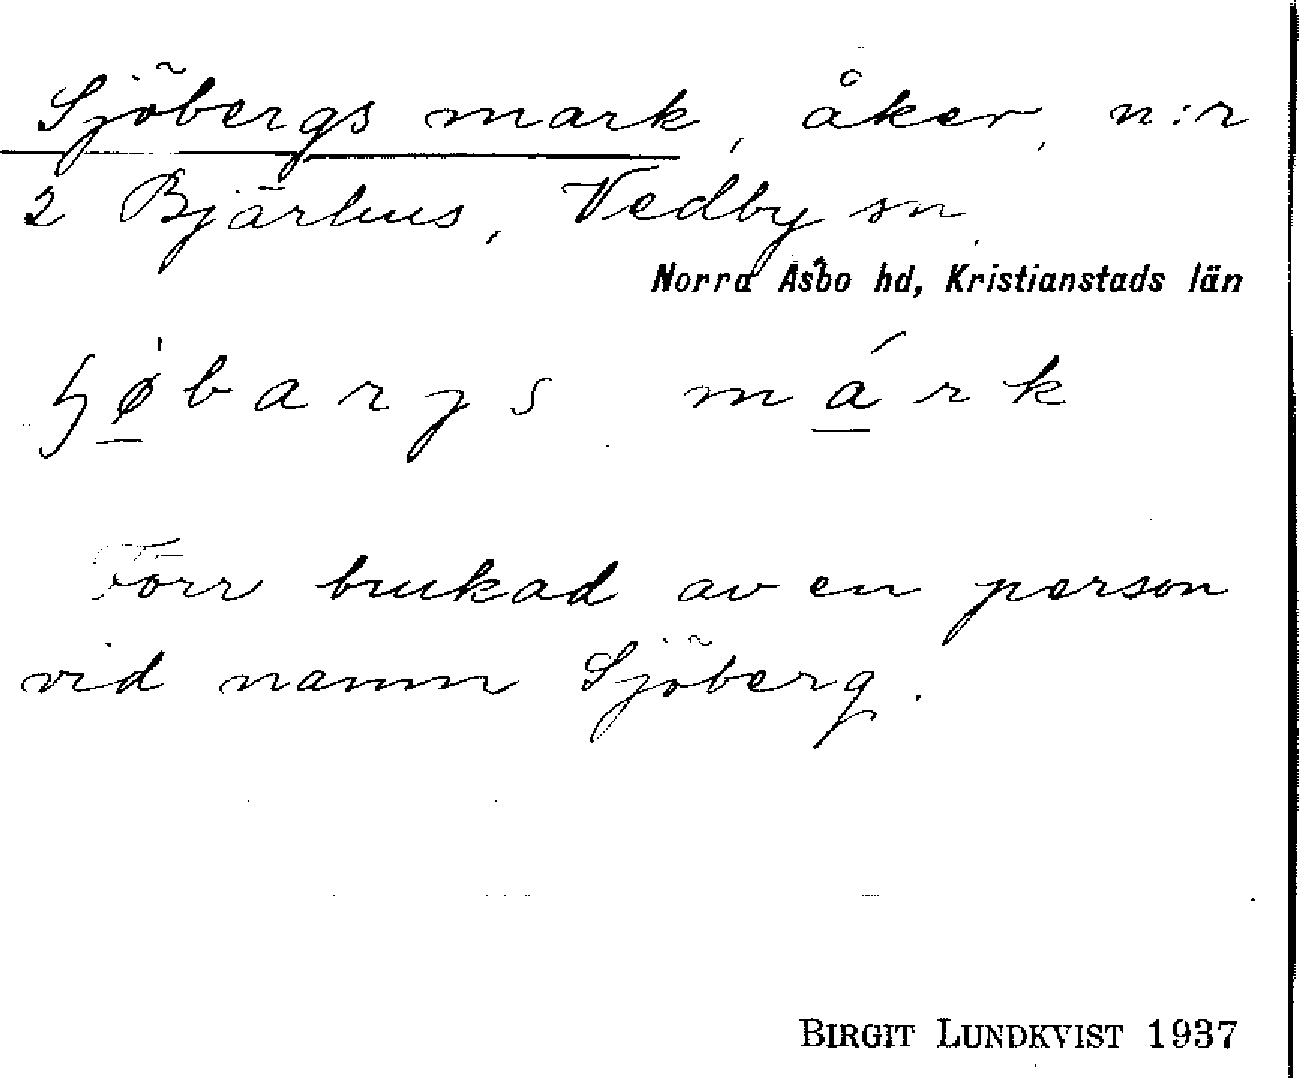 Sjöbergs mark, åker, n:r
2 Bjärhus, Vedby sn
Norra Åsbo hd, Kristianstads län
ɧøbarys mark
Förr brukad av en person
vid namn Sjöberg.
BIRGIT LUNDKVIST 1937